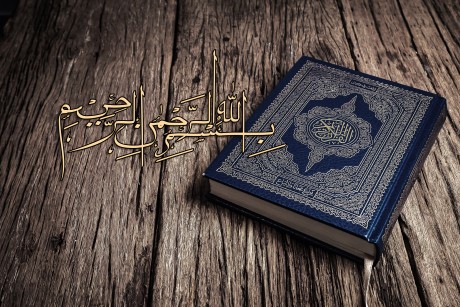 بِسْمِ اللهِ الرَّحْمٰنِ الرَّحِيْمِ
القرآن الكريم